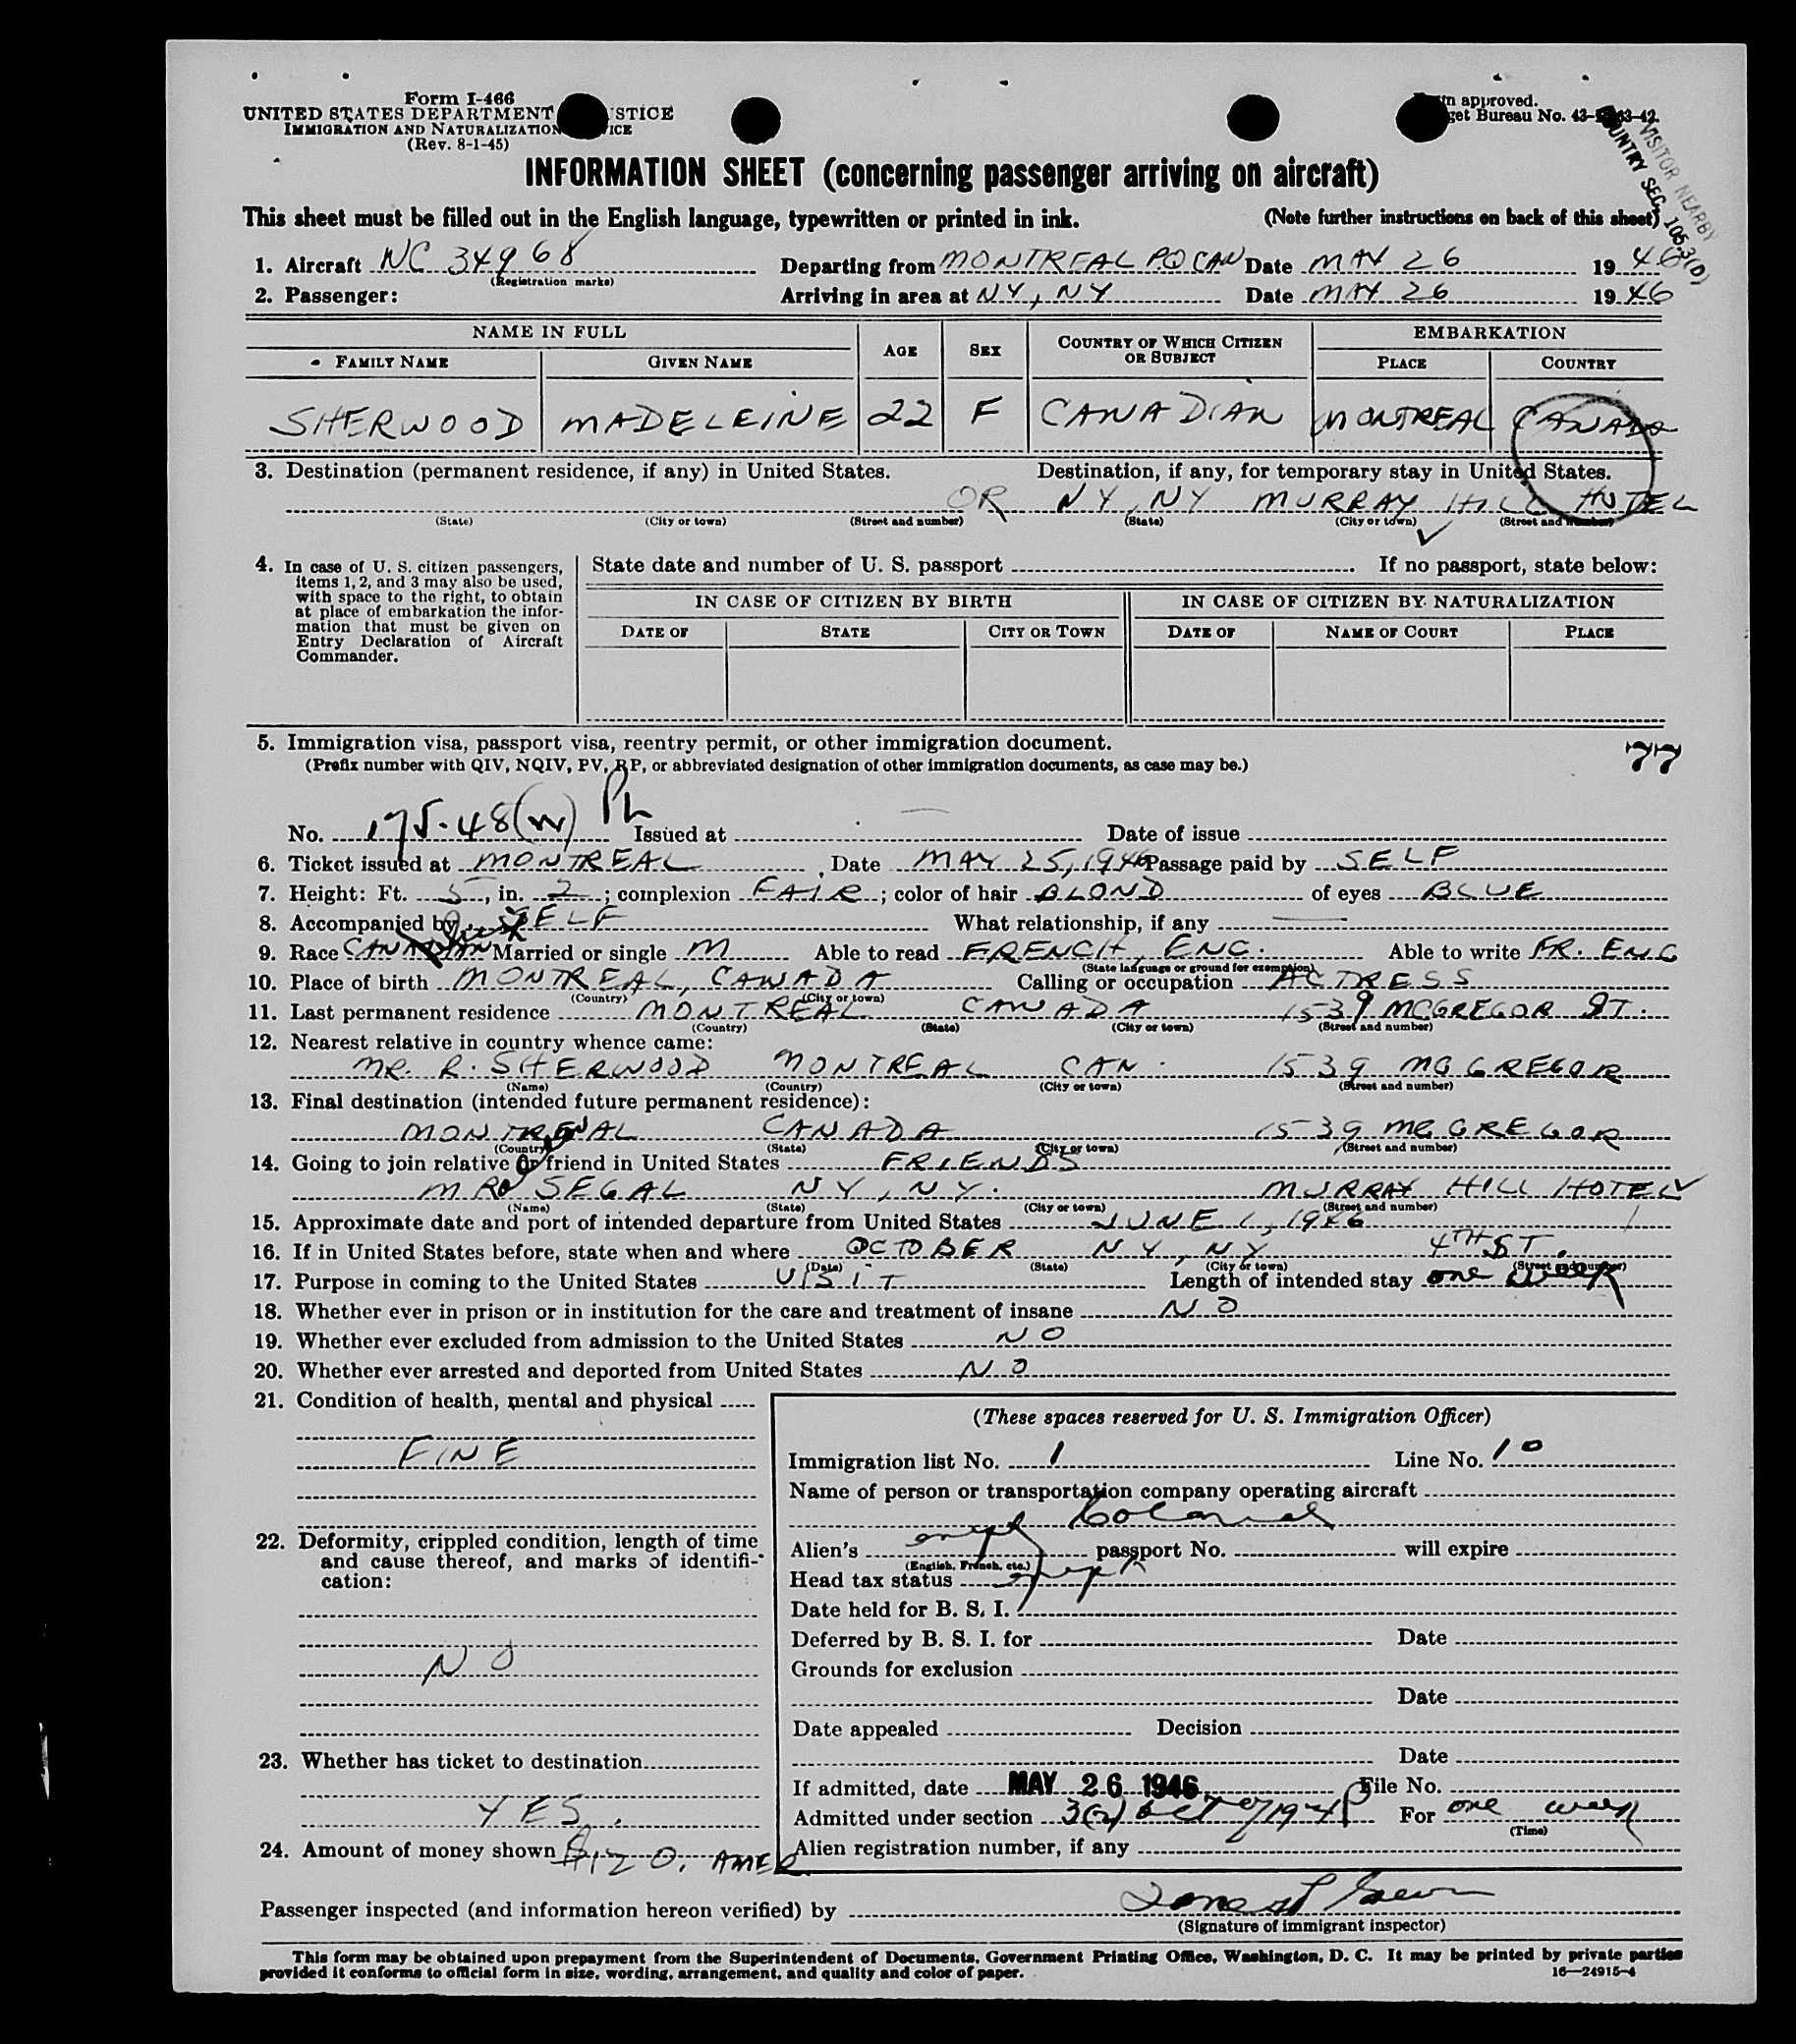 Form I-466
UNITED STATES DEPARTMENT STICE
IMMIGRATION AND NATURALIZATION ICE
(Rev. 8-1-45)
n approved.
get Bureau No. 43-
VISITOR NEARBY
COUNTRY SEC. 105.3(D)
INFORMATION SHEET (concerning passenger arriving on aircraft)
This sheet must be filled out in the English language, typewritten or printed in ink. (Note further instructions on back of this sheet)
1. Aircraft NC 34968 Departing from MONTREAL PQ CAN Date MAY 26 1946
(Registration marks)
2. Passenger: Arriving in area at NY, NY Date MAY 26 1946
NAME IN FULL AGE SEX COUNTRY OF WHICH CITIZEN OR SUBJECT EMBARKATION
FAMILY NAME GIVEN NAME PLACE COUNTRY
SHERWOOD MADELEINE 22 F CANADIAN MONTREAL CANADA
3. Destination (permanent residence, if any) in United States. Destination, if any, for temporary stay in United States.
OR NY, NY MURRAY HILL HOTEL
(State) (City or town) (Street and number) (State) (City or town) (Street and number)
4. In case of U. S. citizen passengers, items 1, 2, and 3 may also be used, with space to the right, to obtain at place of embarkation the information that must be given on Entry Declaration of Aircraft Commander.
State date and number of U. S. passport If no passport, state below:
IN CASE OF CITIZEN BY BIRTH IN CASE OF CITIZEN BY NATURALIZATION
DATE OF STATE CITY OR TOWN DATE OF NAME OF COURT PLACE
5. Immigration visa, passport visa, reentry permit, or other immigration document.
(Prefix number with QIV, NQIV, PV, RP, or abbreviated designation of other immigration documents, as case may be.)
77
No. 175.48(W) Issued at Date of issue
6. Ticket issued at MONTREAL, Date MAY 25, 1946 Passage paid by SELF
7. Height: Ft. 5, in. 2; complexion FAIR; color of hair BLOND of eyes BLUE
8. Accompanied by SELF What relationship, if any
9. Race CANADIAN Married or single M Able to read FRENCH, ENG. Able to write FR. ENG
(State language or ground for exemption)
10. Place of birth MONTREAL, CANADA Calling or occupation ACTRESS
(Country) (City or town)
11. Last permanent residence MONTREAL CANADA 1539 MCGREGOR ST.
(Country) (State) (City or town) (Street and number)
12. Nearest relative in country whence came:
MR. R. SHERWOOD MONTREAL CAN. 1539 MCGREGOR
(Name) (Country) (City or town) (Street and number)
13. Final destination (intended future permanent residence):
MONTREAL CANADA 1539 MCGREGOR
(Country) (State) (City or town) (Street and number)
14. Going to join relative or friend in United States FRIENDS
MR SEGAL NY, NY. MURRAY HILL HOTEL
(Name) (State) (City or town) (Street and number)
15. Approximate date and port of intended departure from United States JUNE 1, 1946
16. If in United States before, state when and where OCTOBER NY, NY 4TH ST.
(Date) (State) (City or town) (Street and number)
17. Purpose in coming to the United States VISIT Length of intended stay one week
18. Whether ever in prison or in institution for the care and treatment of insane NO
19. Whether ever excluded from admission to the United States NO
20. Whether ever arrested and deported from United States NO
21. Condition of health, mental and physical
FINE
22. Deformity, crippled condition, length of time and cause thereof, and marks of identification:
NO
23. Whether has ticket to destination
YES.
24. Amount of money shown $120. AMER
(These spaces reserved for U. S. Immigration Officer)
Immigration list No. 1 Line No. 10
Name of person or transportation company operating aircraft
Colonial
Alien's passport No. will expire
(English, French, etc.)
Head tax status
Date held for B. S. I.
Deferred by B. S. I. for Date
Grounds for exclusion
Date
Date appealed Decision
Date
If admitted, date MAY 26 1946 File No.
Admitted under section 3(2) act of 1924 For one week
(Time)
Alien registration number, if any
Passenger inspected (and information hereon verified) by
(Signature of immigrant inspector)
This form may be obtained upon prepayment from the Superintendent of Documents, Government Printing Office, Washington, D. C. It may be printed by private parties
provided it conforms to official form in size, wording, arrangement, and quality and color of paper. 16—24915-4